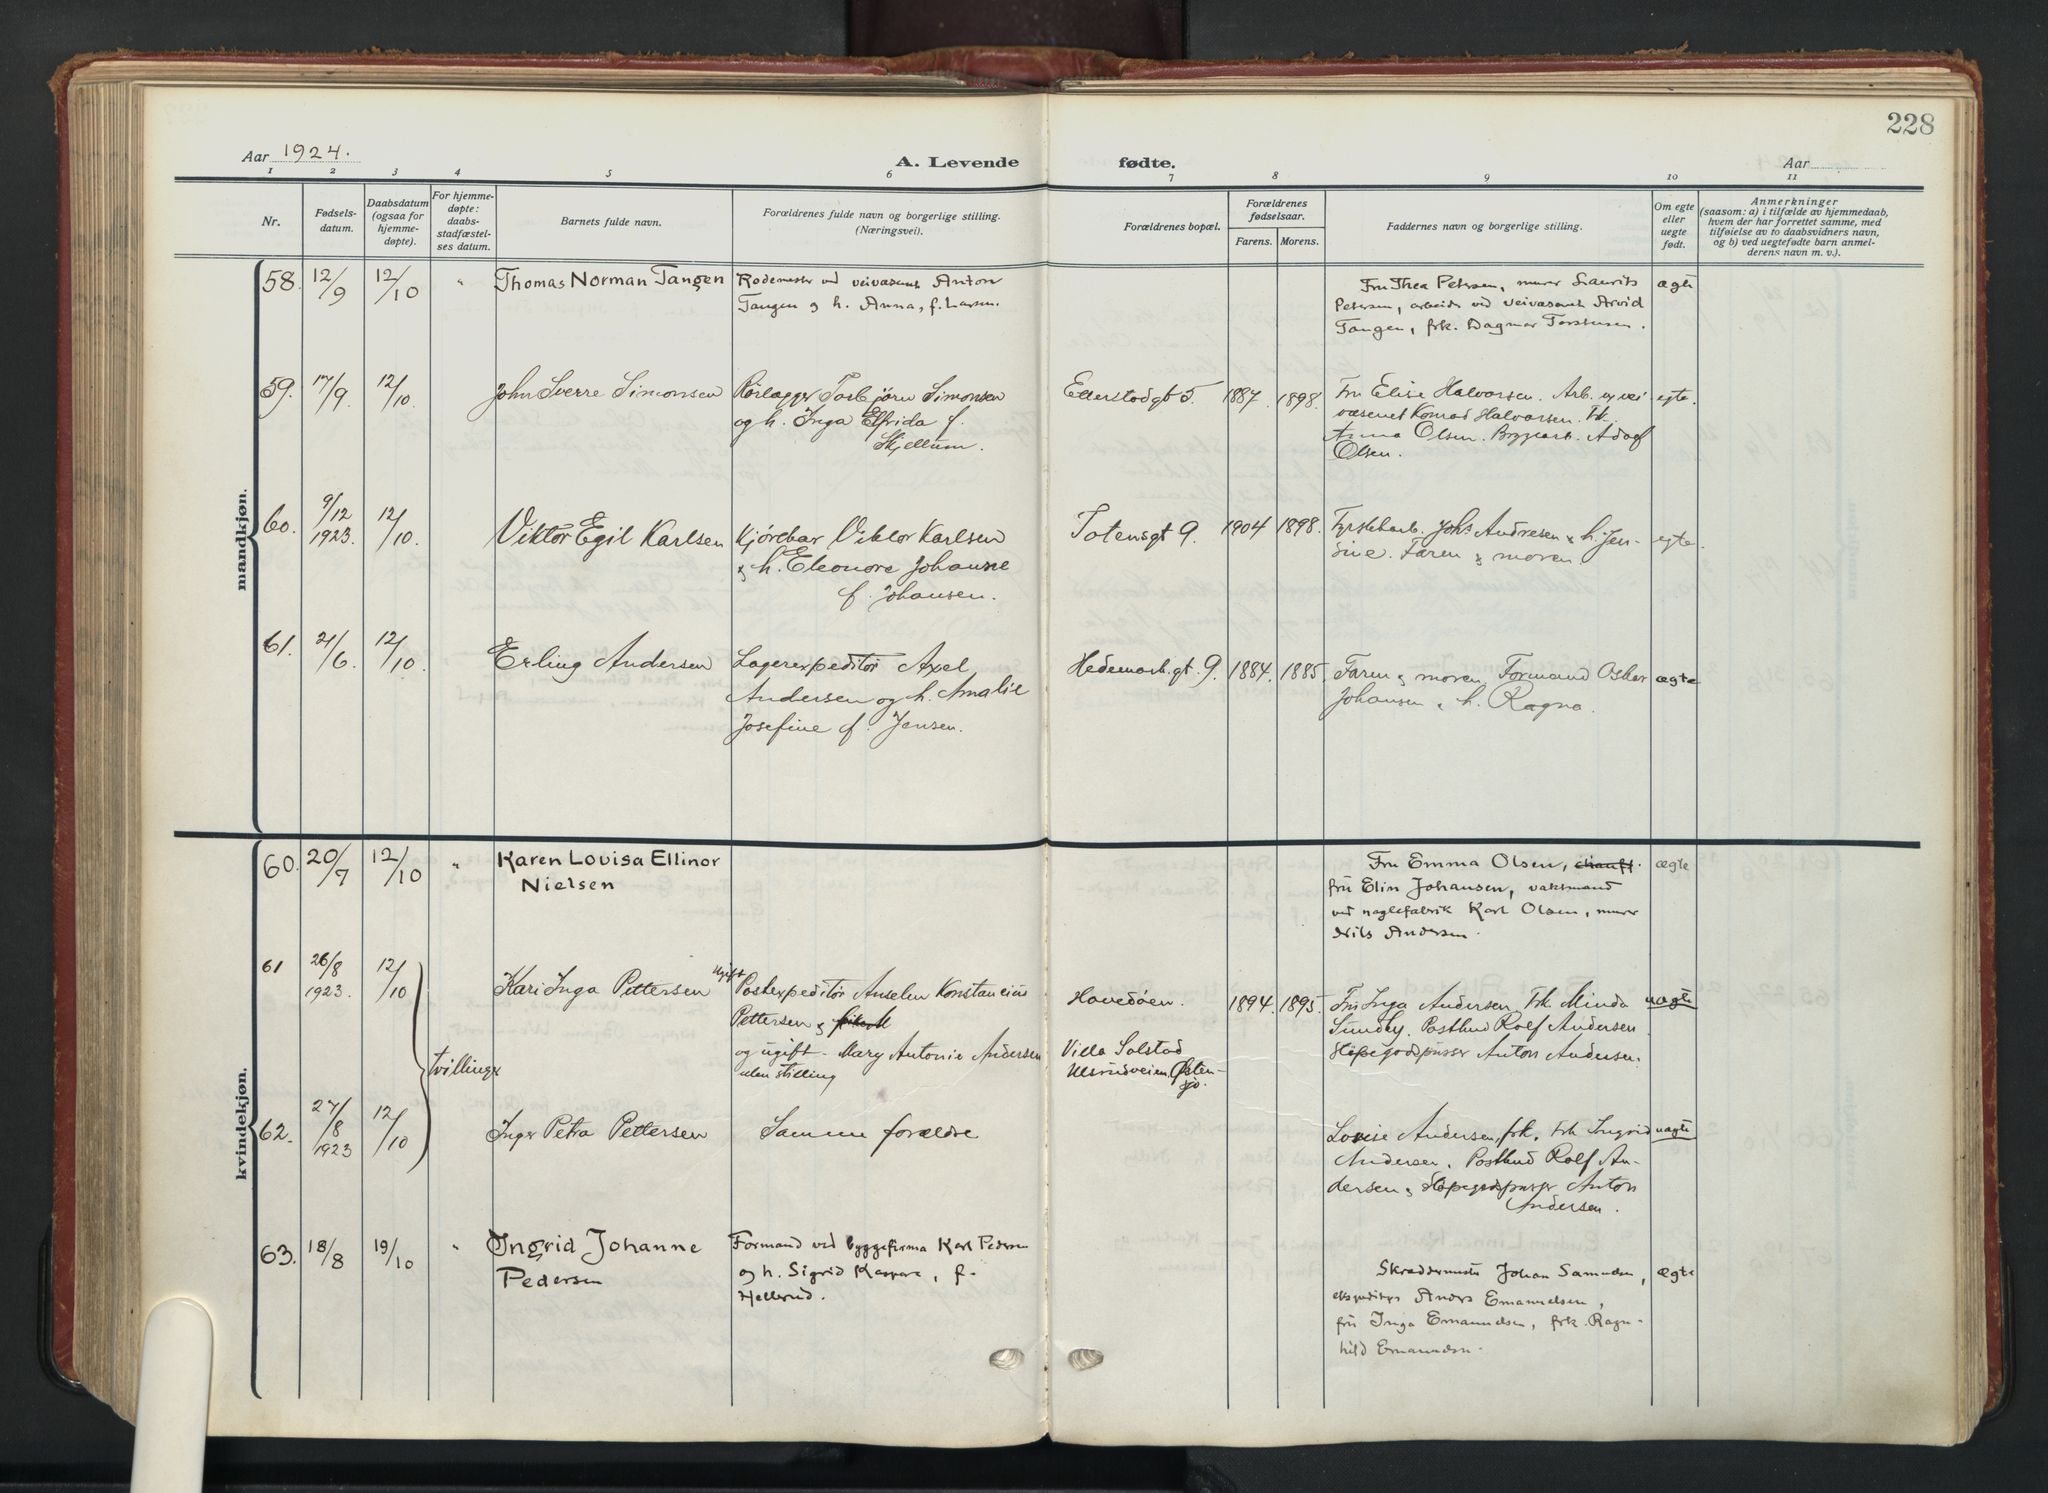 228
Aar 1924.
A. Levende fødte.
Aar
1 2 3 4 5 6 7 8 9 10 11
Nr.
Fødsels-
datum.
Daabsdatum
(ogsaa for
hjemme-
døpte).
For hjemme-
døpte:
daabs-
stadfæstel-
ses datum.
Barnets fulde navn.
Forældrenes fulde navn og borgerlige stilling.
(Næringsvei).
Forældrenes bopæl.
Forældrenes
fødselsaar.
Farens. Morens.
Faddernes navn og borgerlige stilling.
Om egte
eller
uegte
født.
Anmerkninger
(saasom: a) i tilfælde av hjemmedaab,
hvem der har forrettet samme, med
tilføielse av to daabsvidners navn,
og b) ved uegtefødte barn anmel-
derens navn m. v.).
mandkjøn.
58. 12/9 12/10 " Thomas Norman Tangen
Rodemester ved veivæsenet Anton
Tangen og h. Anna, f. Larsen.
Fru Thea Petersen, murer Laurits
Petersen, arbeider ved veivæsenet Arvid
Tangen, frk. Dagmar Torstensen.
ægte
59. 17/9. 12/10. John Sverre Simonsen
Rørlægger Torbjørn Simonsen
og h. Inga Elfrida f.
Skjellum.
Etterstadgt 5. 1887. 1898.
Fru Elise Halvorsen. Arb. v. vei
væsenet Konrad Halvorsen. Frk.
Anna Olsen. Byggearb. Adolf
Olsen.
egte.
60. 9/12 1923. 12/10. Viktor Egil Karlsen
Kjørebar Viktor Karlsen
& h. Eleonore Johanne
f. Johansen.
Totensgt 9. 1904 1898.
Johs. Andresen & h. Jen-
sine. Faren & moren.
egte.
61. 21/6. 12/10. Erling Andersen
Lagerexpeditør Axel
Andersen og h. Amalie
Josefine f. Jensen.
Hedemark.gt. 9. 1884. 1885.
Faren & moren. Formand Oskar
Johansen & h. Ragna.
ægte
kvindekjøn.
60. 20/7 12/10 " Karen Lovisa Ellinor
Nielsen
Fru Emma Olsen, chauff.
fru Elin Johansen, vaktmand
ved naglefabrik Karl Olsen, murer
Nils Andersen.
ægte
61 26/8 1923. 12/10 Kari Inga Pettersen
Ugift Postexpeditør Anselm Konstancius
Pettersen &
og ugift. Mary Antonie Andersen
uten stilling
Hovedøen.
Villa Solstad
Ulsrudveien. Østen-
sjø.
1894. 1895.
Fru Inga Andersen, Frk. Minda
Sundby. Postbud Rolf Andersen
Anton Andersen.
uægte
tvillinger
62. 27/8 1923 12/10 Inger Petra Pettersen
Samme forældre
Lovise Andersen, frk. Frk Ingrid
Andersen. Postbud Rolf An-
dersen & Anton
Andersen.
uægte
63. 18/8 19/10 " Ingrid Johanne
Pedersen
Formand ved byggefirma Karl Pedersen
og h. Sigrid Kaspara, f.
Hellerud.
Skreddermester Johan Samuelsen,
Anders Emanuelsen,
fru Inga Emanuelsen, frk. Ragn-
hild Emanuelsen.
ægte